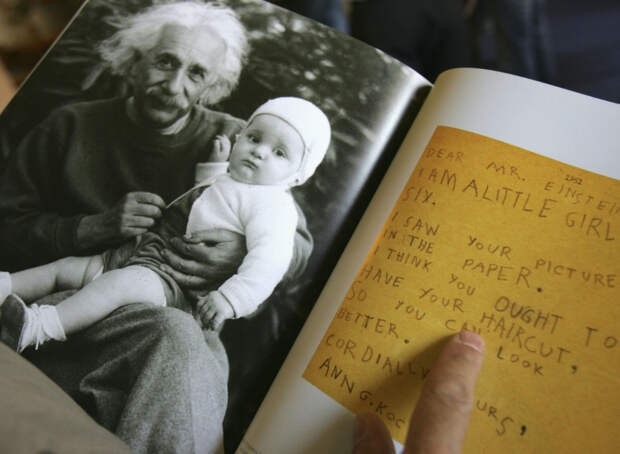 1952
DEAR MR. EINSTEIN
I AM A LITTLE GIRL
SIX.
I SAW YOUR PICTURE
IN THE PAPER.
I THINK YOU OUGHT TO
HAVE YOUR HAIRCUT,
SO YOU CAN LOOK
BETTER.
CORDIALLY YOURS,
ANN G. KOC